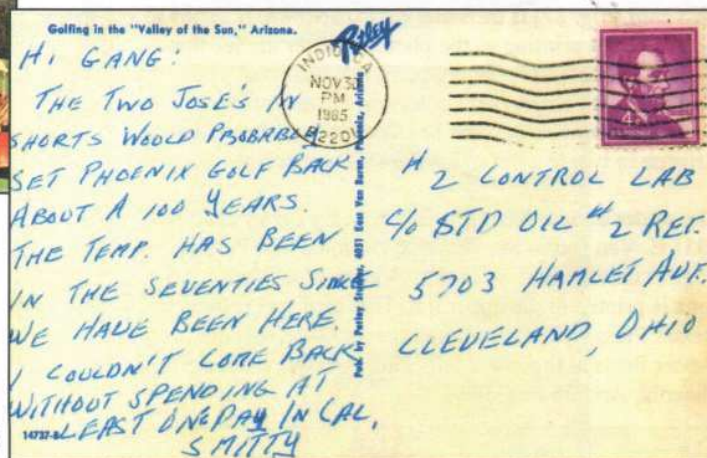 Golfing in the "Valley of the Sun," Arizona.
Petley
HI GANG:
THE TWO JOSE'S IN
SHORTS WOULD PROBABLY
SET PHOENIX GOLF BACK
ABOUT A 100 YEARS.
THE TEMP. HAS BEEN
IN THE SEVENTIES SINCE
WE HAVE BEEN HERE.
I COULDN'T COME BACK
WITHOUT SPENDING AT
LEAST ONE DAY IN CAL,
SMITTY
14737-B
Pub. by Petley Studios, 4051 East Van Buren, Phoenix, Arizona
INDIO, CA
NOV 30
PM
1965
92201
4¢
#2 CONTROL LAB
C/O STD OIL #2 REF.
5703 HAMLET AVE.
CLEVELAND, OHIO